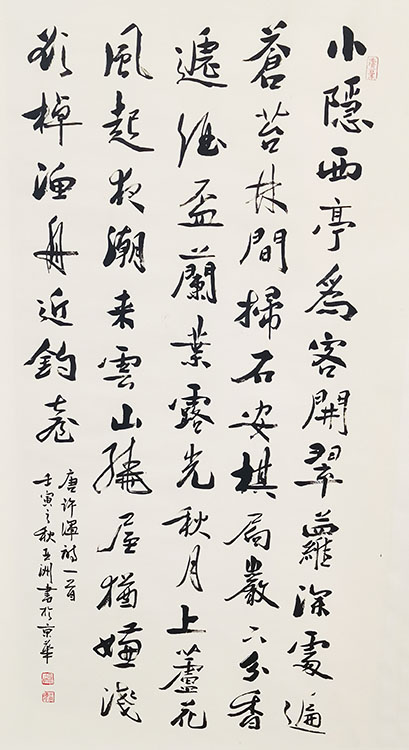 小隱西亭爲客開翠蘿深處遍
蒼苔林間掃石安棋局巖下分香
遞酒盃蘭葉露光秋月上蘆花
風起夜潮来雲山繞屋猶嫌淺
欲棹漁舟近釣臺
唐许渾詩一首
壬寅之秋亞洲書於京華